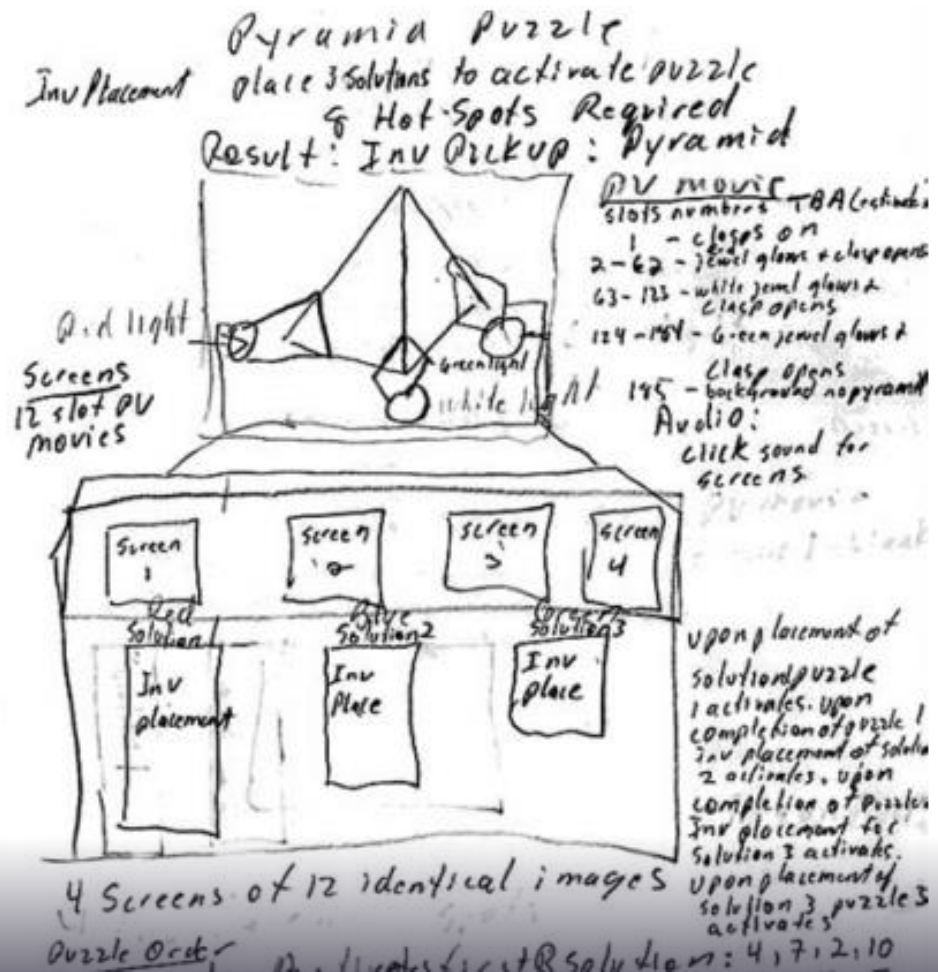 Pyramid Puzzle
Inv Placement
place 3 Solutions to activate puzzle
8 Hot-Spots Required
Result: Inv Pickup: Pyramid
PV movie
slots numbers TBA
1 - clasps on
2-62 - jewel glows + clasp opens
63-123 - white jewel glows &
clasp opens
124-184 - Green jewel glows &
clasp opens
185 - background no pyramid
Audio:
click sound for
screens
Red light
Green light
white light
Screens
12 slot PV
movies
Screen
1
screen
2
screen
3
screen
4
Red
Solution 1
Blue
Solution 2
Green
Solution 3
Inv
placement
Inv
Place
Inv
place
upon placement of
solution puzzle
1 activates. upon
completion of puzzle 1
inv placement of
2 activates. upon
completion of puzzle
Inv placement for
solution 3 activates.
upon placement of
solution 3 puzzle 3
activates
4 Screens of 12 identical images
Puzzle Order
solution: 4, 7, 2, 10